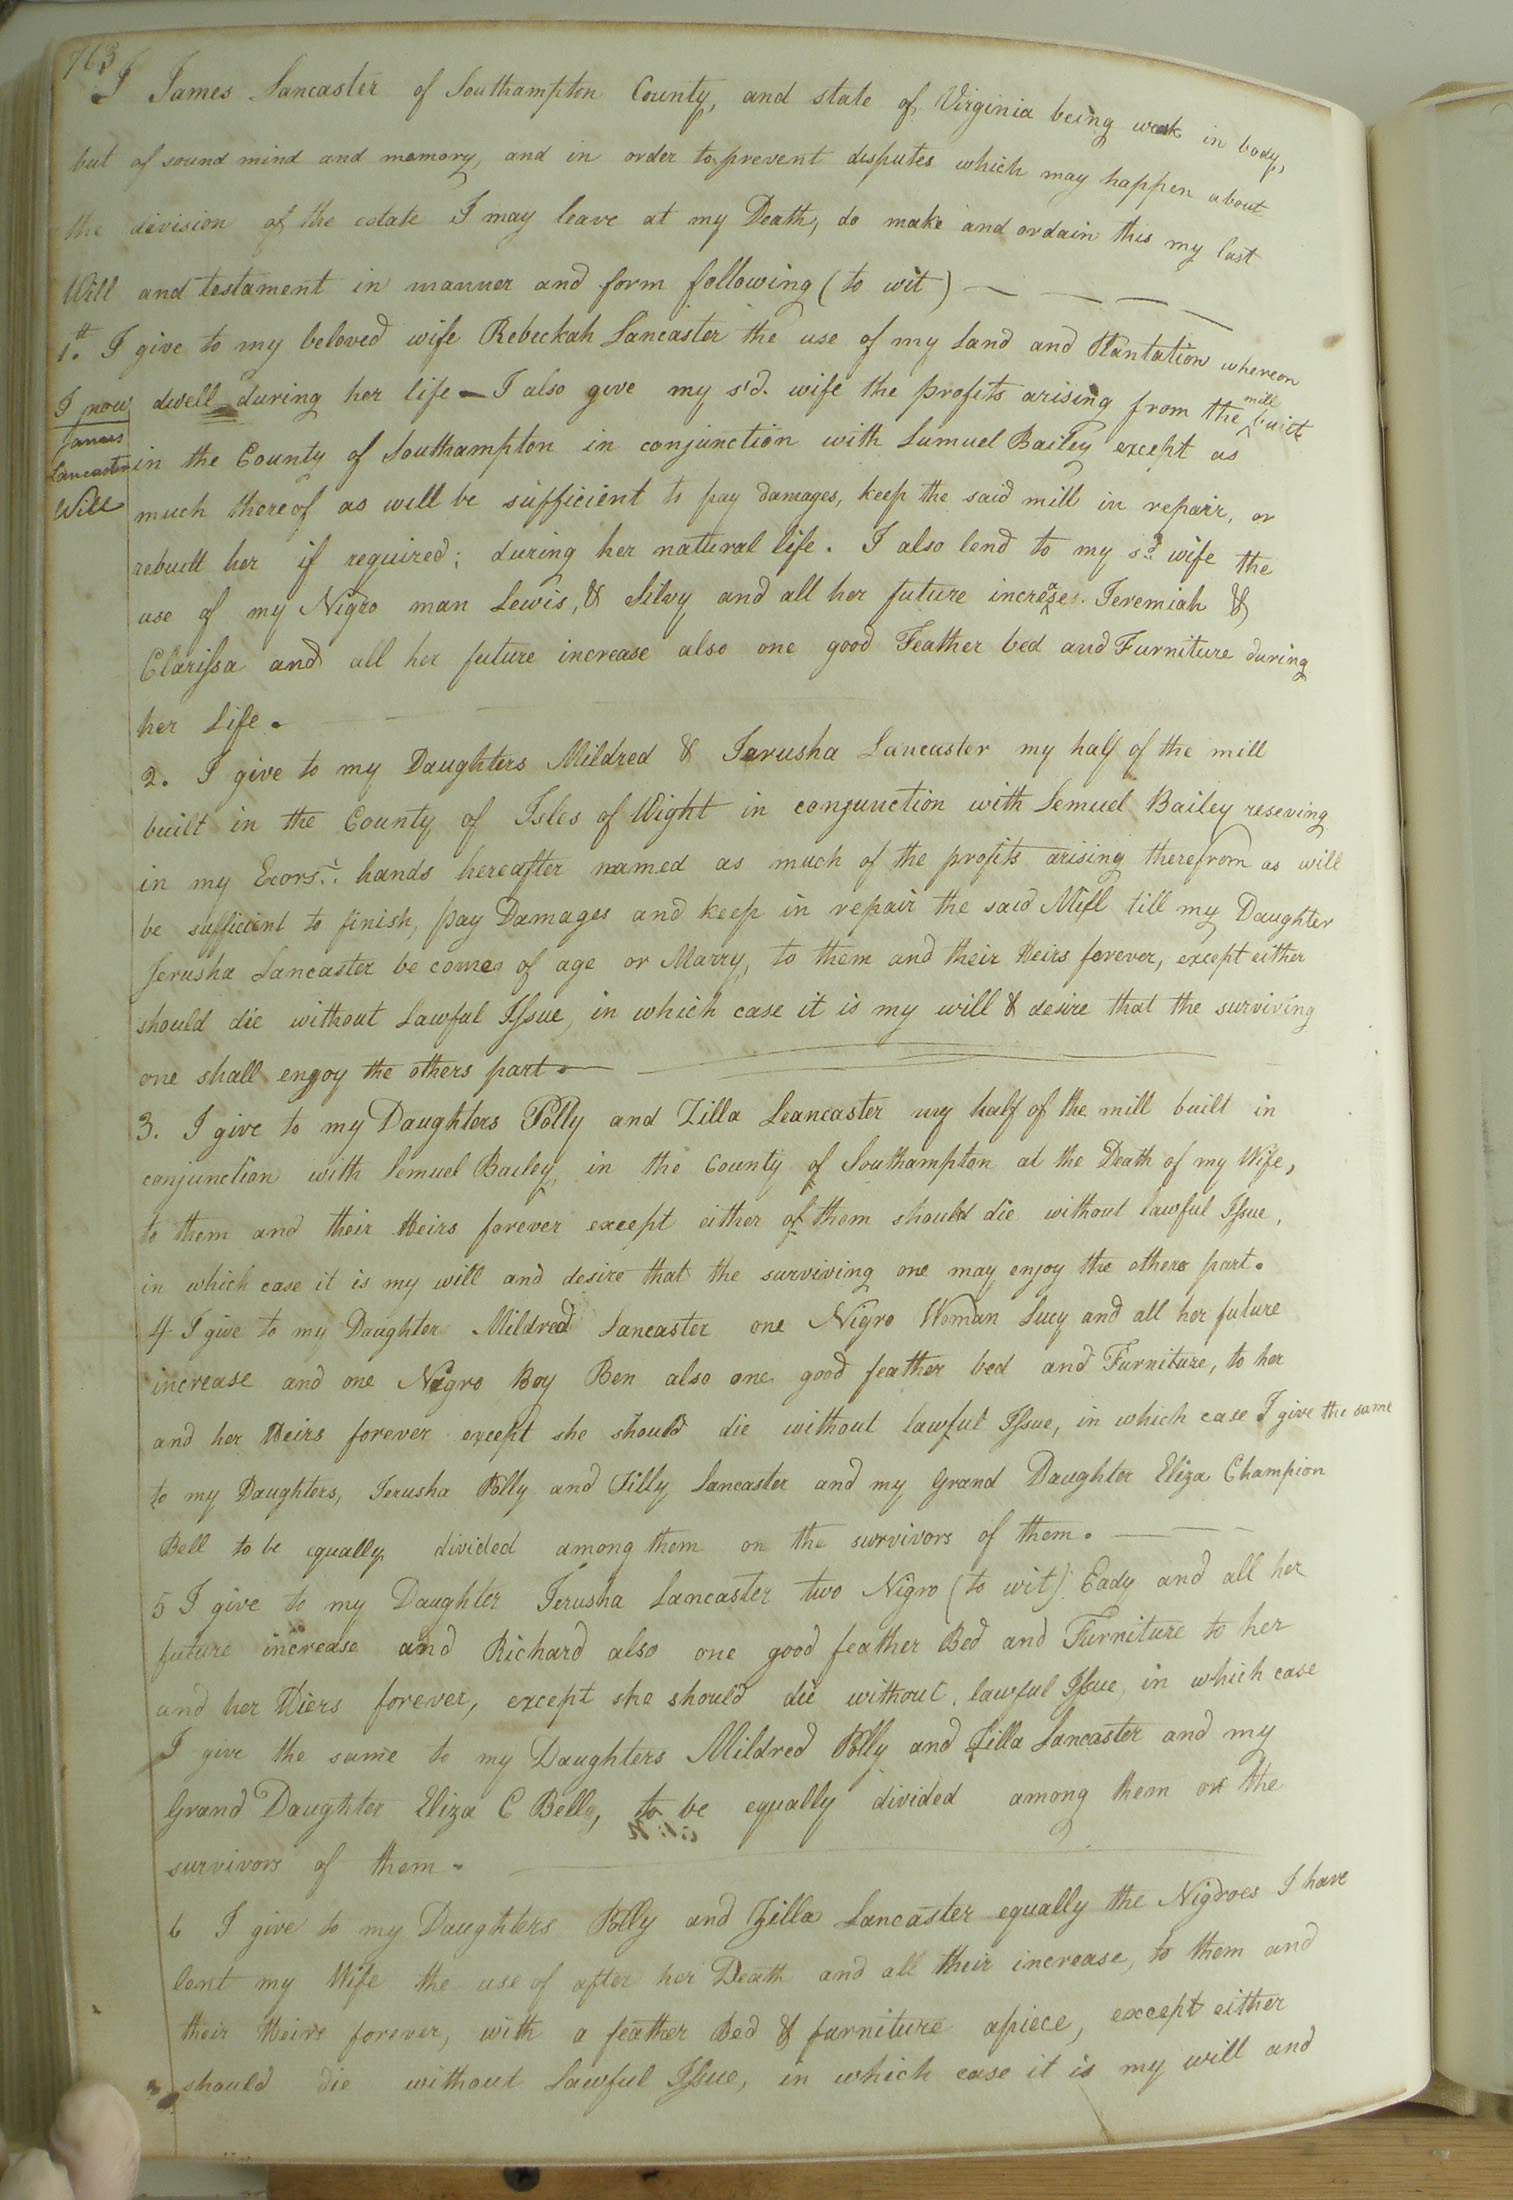 763
I James Lancaster of Southampton County, and state of Virginia being weak in body,
but of sound mind and memory, and in order to prevent disputes which may happen about
the division of the estate I may leave at my Death, do make and ordain this my last
Will and testament in manner and form following (to wit)
1.st I give to my beloved wife Rebeckah Lancaster the use of my Land and Plantation whereon
I now dwell during her life — I also give my s'd. wife the profits arising from the mill built
James
Lancaster
Will
in the County of Southampton in conjunction with Lemuel Bailey except as
much thereof as will be sufficient to pay damages, keep the said mill in repair, or
rebuilt her if required; during her natural life. I also lend to my sd. wife the
use of my Nigro man Lewis, & Silvy and all her future increase. Jeremiah &
Clarissa and all her future increase also one good Feather bed and Furniture during
her Life.
2. I give to my Daughters Mildred & Jerusha Lancaster my half of the mill
built in the County of Isles of Wight in conjunction with Lemuel Bailey reserving
in my Exors. hands hereafter named as much of the profits arising therefrom as will
be sufficient to finish, pay Damages and keep in repair the said Mill till my Daughter
Jerusha Lancaster becomes of age or Marry, to them and their Heirs forever, except either
should die without Lawful Issue, in which case it is my will & desire that the surviving
one shall enjoy the others part.
3. I give to my Daughters Polly and Zilla Leancaster my half of the mill built in
conjunction with Lemuel Bailey, in the County of Southampton at the Death of my Wife,
to them and their Heirs forever except either of them should die without lawful Issue,
in which case it is my will and desire that the surviving one may enjoy the others part.
4 I give to my Daughter Mildred Lancaster one Nigro Woman Lucy and all her future
increase and one Nigro Boy Ben also one good feather bed and Furniture, to her
and her Heirs forever except she should die without lawful Issue, in which case I give the same
to my Daughters, Jerusha Polly and Zilly Lancaster and my Grand Daughter Eliza Champion
Bell to be equally divided among them or the survivors of them.
5 I give to my Daughter Jerusha Lancaster two Nigro (to wit) Eady and all her
future increase and Richard also one good feather Bed and Furniture to her
and her Hiers forever, except she should die without lawful Issue, in which case
I give the same to my Daughters Mildred Polly and Zilla Lancaster and my
Grand Daughter Eliza C Bell, to be equally divided among them or the
survivors of them.
6 I give to my Daughters Polly and Zilla Lancaster equally the Nigroes I have
lent my Wife the use of after her Death and all their increase, to them and
their Heirs forever, with a feather Bed & furniture apiece, except either
should die without Lawful Issue, in which case it is my will and